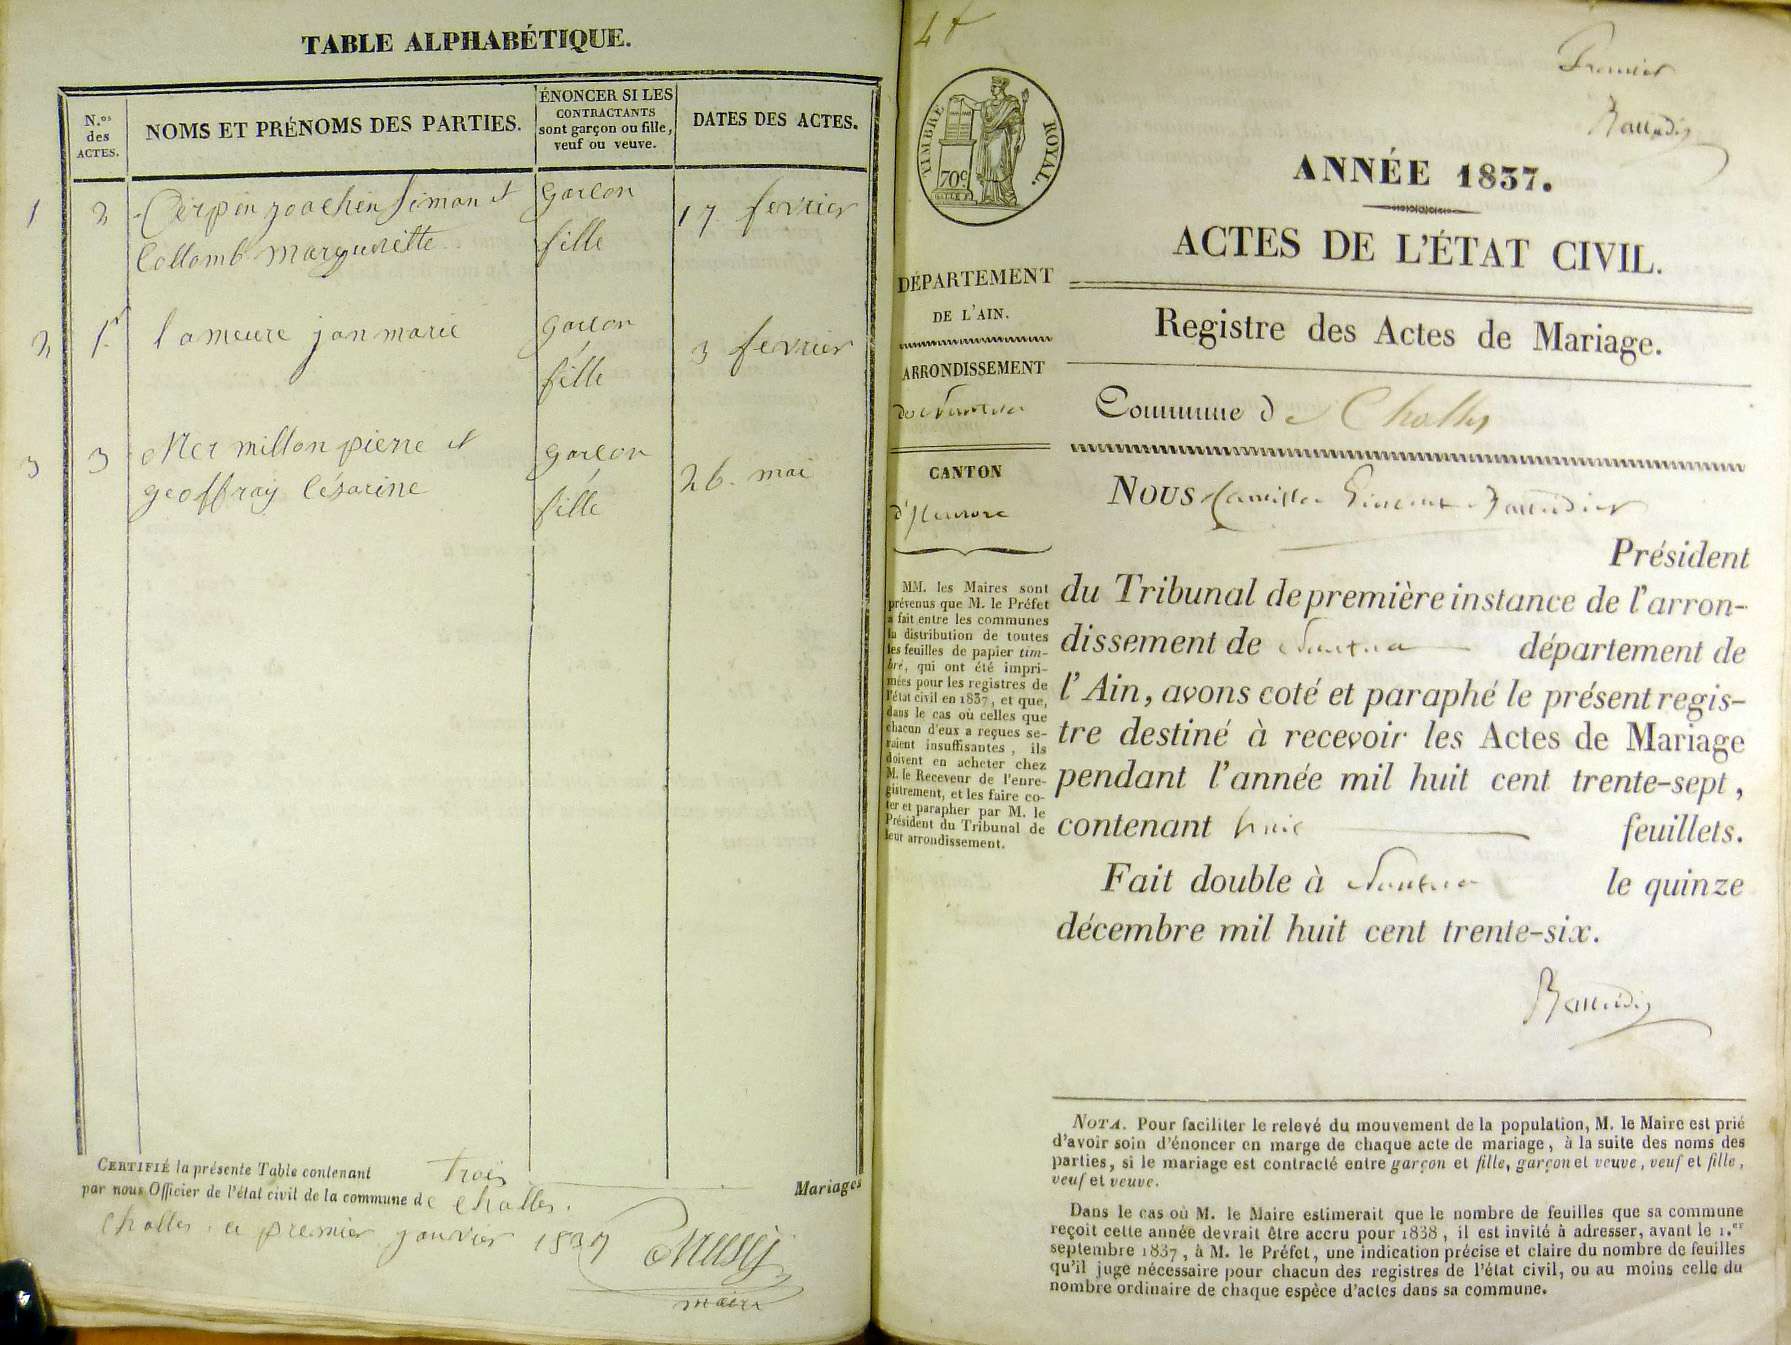 TABLE ALPHABÉTIQUE.
N.os des ACTES.
NOMS ET PRÉNOMS DES PARTIES.
ÉNONCER SI LES
CONTRACTANTS
sont garçon ou fille,
veuf ou veuve.
DATES DES ACTES.
1 2 Cerpin joachin Simon et garcon 17 fevrier
Collomb Margueritte fille
2 1.r lameure jan marie garcon 3 fevrier
fille
3 3 Mermillon pierre et garcon 26. mai
geoffray Césarine fille
CERTIFIÉ la présente Table contenant trois Mariages
par nous Officier de l'état civil de la commune de Challes.
Challes. a premier janvier 1837
maire
4 f
Premier
Baudin
TIMBRE ROYAL.
70c
ANNÉE 1837.
ACTES DE L'ÉTAT CIVIL.
Registre des Actes de Mariage.
Commune de Challes
DÉPARTEMENT
DE L'AIN.
ARRONDISSEMENT
de Nantua
CANTON
d'
MM. les Maires sont
prévenus que M. le Préfet
a fait entre les communes
la distribution de toutes
les feuilles de papier tim-
bré, qui ont été impri-
mées pour les registres de
l'état civil en 1837, et que,
dans le cas où celles que
chacun d'eux a reçues se-
raient insuffisantes, ils
doivent en acheter chez
M. le Receveur de l'enre-
gistrement, et les faire co-
ter et parapher par M. le
Président du Tribunal de
leur arrondissement.
NOUS Camille Vincent
Président
du Tribunal de première instance de l'arron-
dissement de Nantua département de
l'Ain, avons coté et paraphé le présent regis-
tre destiné à recevoir les Actes de Mariage
pendant l'année mil huit cent trente-sept,
contenant huit feuillets.
Fait double à Nantua le quinze
décembre mil huit cent trente-six.
NOTA. Pour faciliter le relevé du mouvement de la population, M. le Maire est prié
d'avoir soin d'énoncer en marge de chaque acte de mariage, à la suite des noms des
parties, si le mariage est contracté entre garçon et fille, garçon et veuve, veuf et fille,
veuf et veuve.
Dans le cas où M. le Maire estimerait que le nombre de feuilles que sa commune
reçoit cette année devrait être accru pour 1838, il est invité à adresser, avant le 1.er
septembre 1837, à M. le Préfet, une indication précise et claire du nombre de feuilles
qu'il juge nécessaire pour chacun des registres de l'état civil, ou au moins celle du
nombre ordinaire de chaque espèce d'actes dans sa commune.